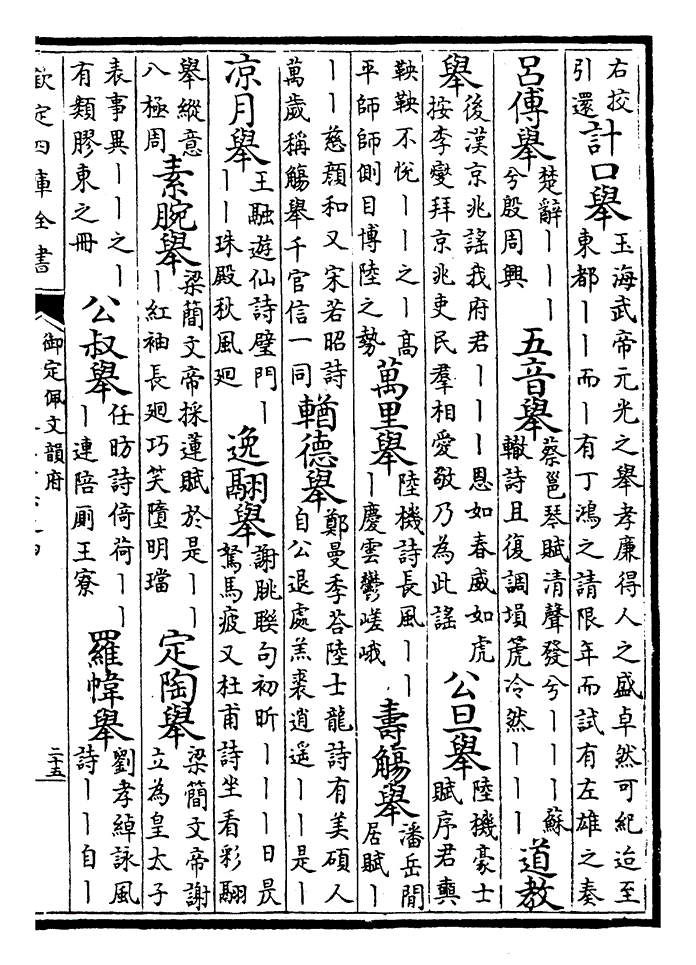 右挍
引還
計口舉
玉海武帝元光之舉孝廉得人之盛卓然可紀迨至
東都丨丨而丨有丁鴻之請限年而試有左雄之奏
呂傅舉
楚辭丨丨丨
兮殷周興
五音舉
蔡邕琴賦清聲發兮丨丨丨蘇
轍詩且復調塤箎冷然丨丨丨
道教
舉
後漢京兆謠我府君丨丨丨恩如春威如虎
按李燮拜京兆吏民羣相愛敬乃為此謠
公旦舉
陸機豪士
賦序君奭
鞅鞅不悅丨丨之丨高
平師師側目博陸之勢
萬里舉
陸機詩長風丨丨
丨慶雲鬱嵯峨
壽觴舉
潘岳閒
居賦丨
丨丨慈顔和又宋若昭詩
萬歲稱觴舉千官信一同
輶德舉
鄭曼季荅陸士龍詩有美碩人
自公退處羔裘逍遥丨丨是丨
凉月舉
王融遊仙詩璧門丨
丨丨珠殿秋風廻
逸翮舉
謝朓聨句初昕丨丨丨日昃
駑馬疲又杜甫詩坐看彩翮
舉縱意
八極周
素腕舉
梁簡文帝採蓮賦於是丨丨
丨紅袖長廻巧笑墮明璫
定陶舉
梁簡文帝謝
立為皇太子
表事異丨丨之丨
有類膠東之冊
公叔舉
任昉詩倚荷丨丨
丨連陪厠王寮
羅幃舉
劉孝綽詠風
詩丨丨自丨
欽定四庫全書
御定佩文韻府
二十五